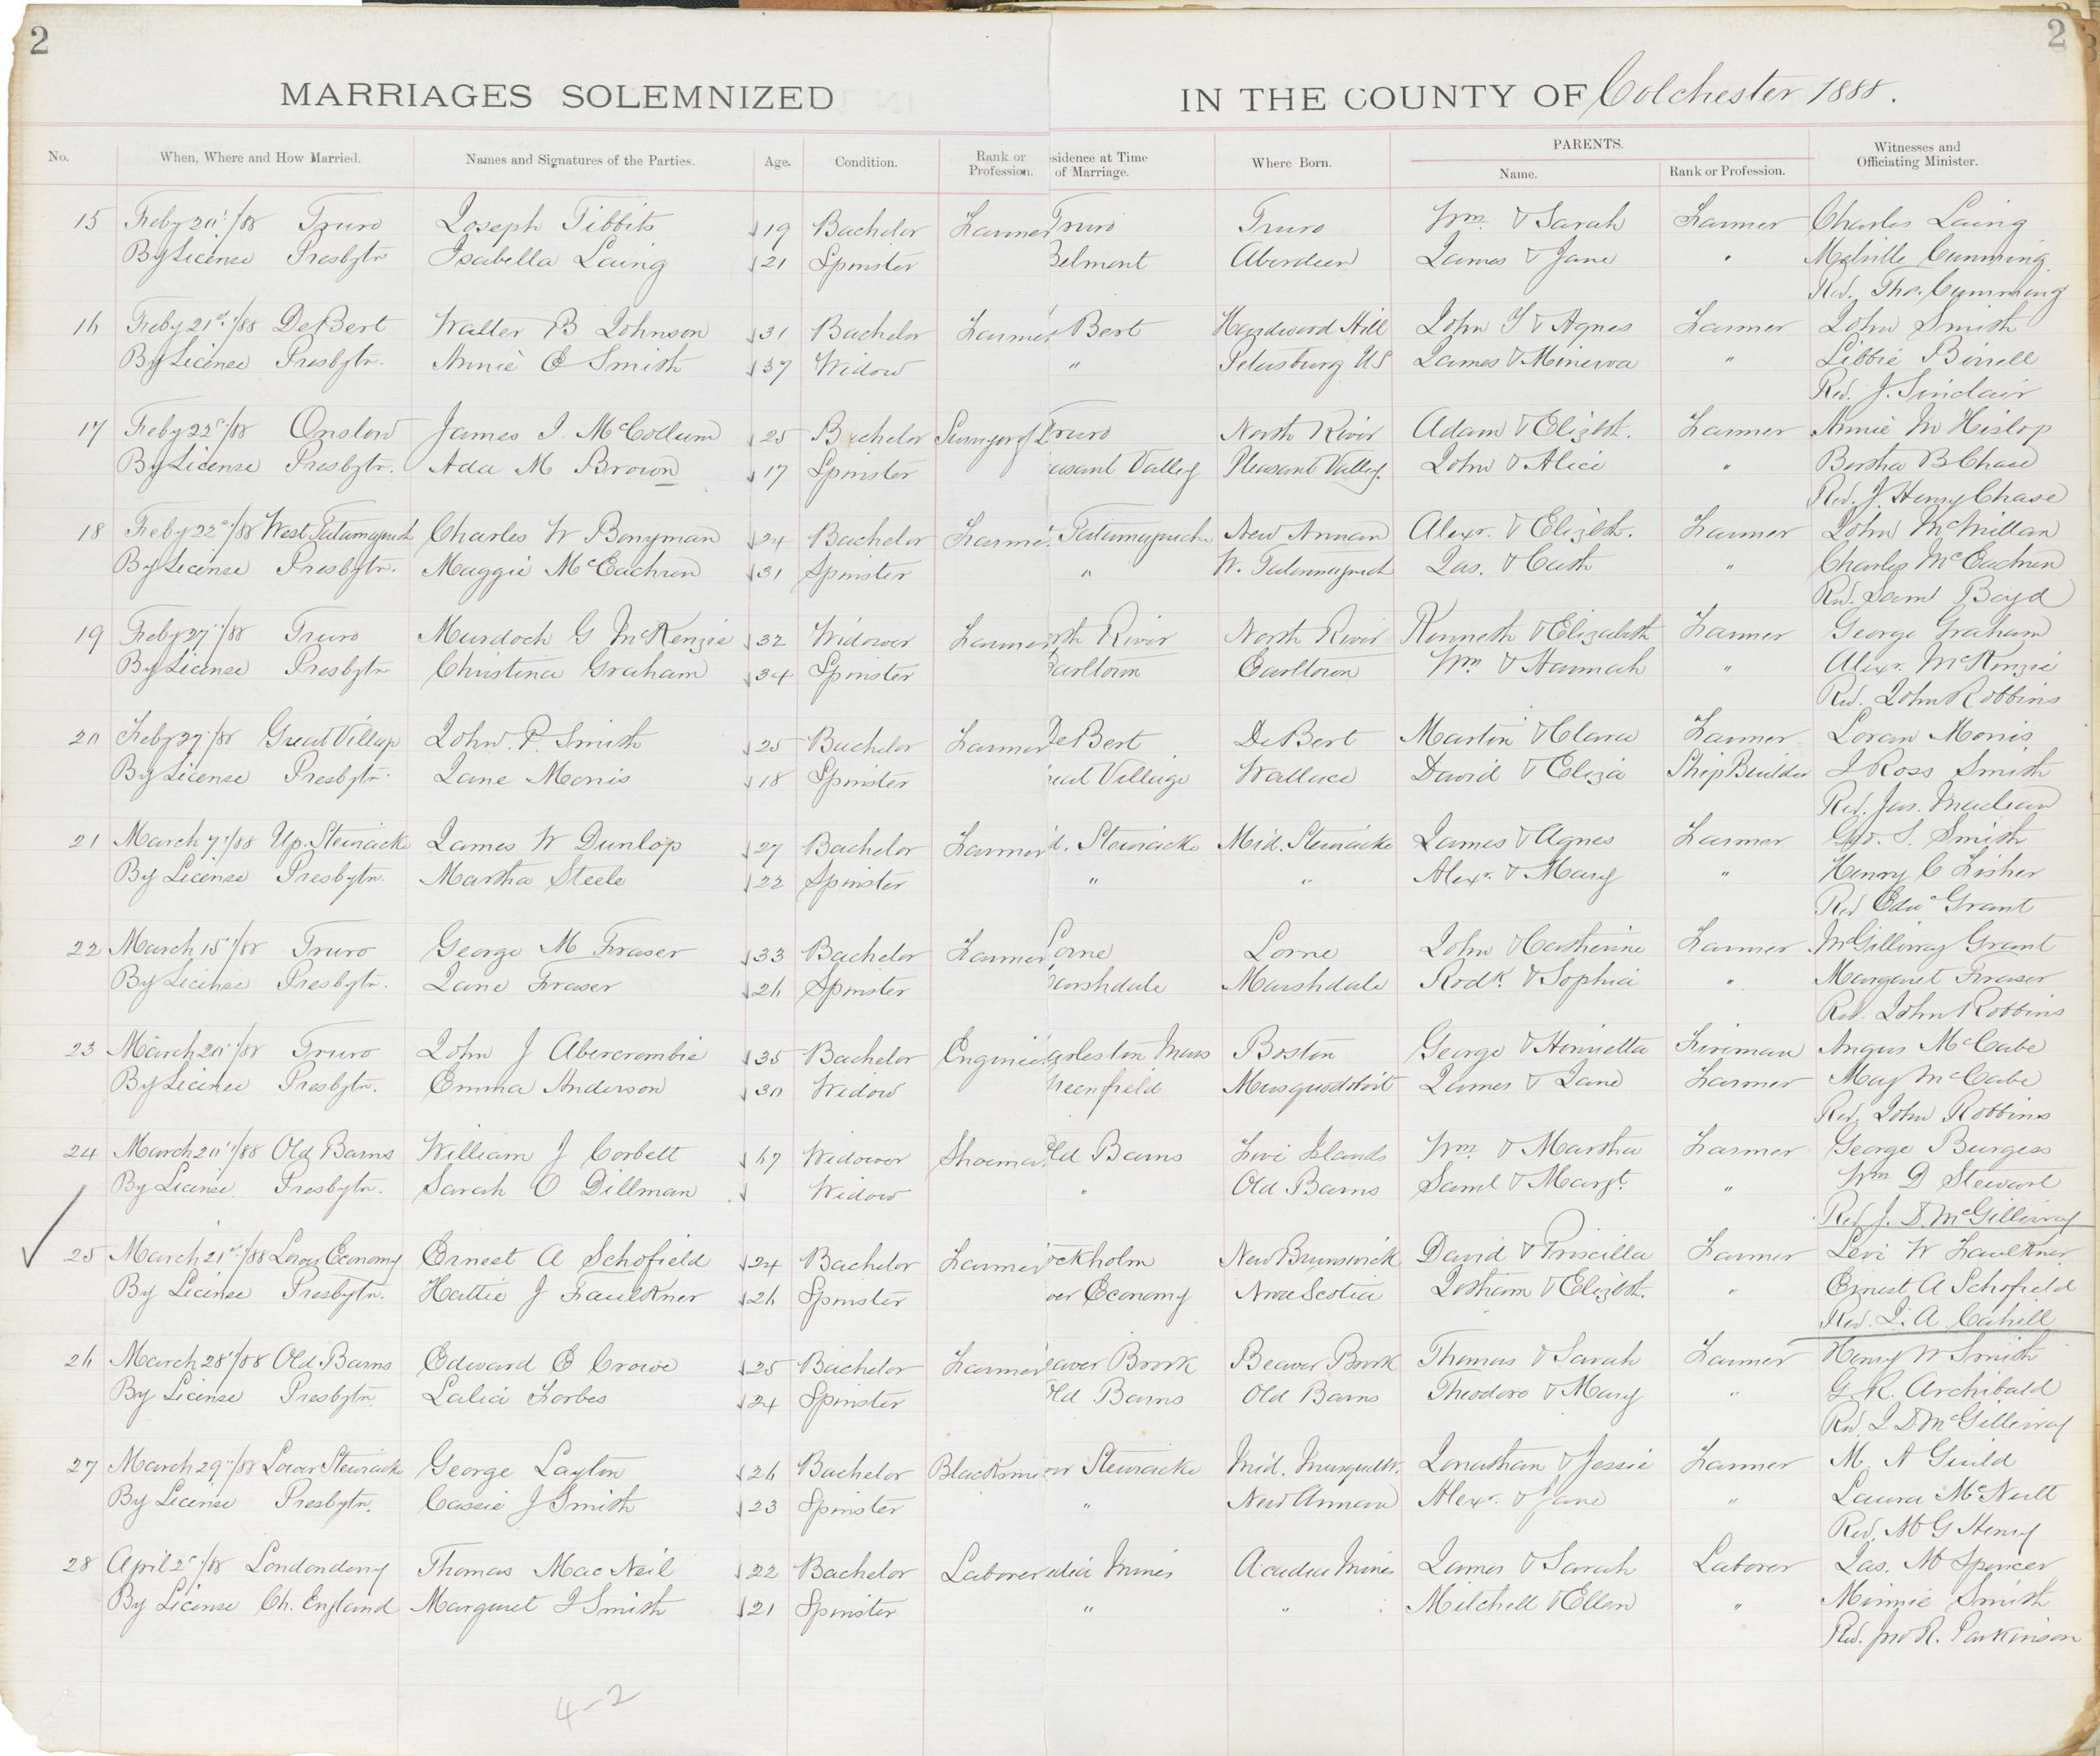 2
2
MARRIAGES SOLEMNIZED IN THE COUNTY OF Colchester 1888.
No. When, Where and How Married. Names and Signatures of the Parties. Age. Condition. Rank or Profession. sidence at Time of Marriage. Where Born. PARENTS. Name. Rank or Profession. Witnesses and Officiating Minister.
15 Feby 20 /88 Truro Joseph Tibbits 19 Bachelor Farmer Truro Truro Wm & Sarah Farmer Charles Laing
By License Presbytr Isabella Laing 21 Spinster Belmont Aberdeen James & Jane " Melville Cumming
Rev. Tho. Cumming
16 Feby 21st/88 DeBert Walter B Johnson 31 Bachelor Farmer Bert Hardwood Hill John & Agnes Farmer John Smith
By License Presbytr. Annie E Smith 37 Widow " Petersburg US James & Minerva " Libbie Birrell
Rev. J. Sinclair
17 Feby 22d/88 Onslow James I McCollum 25 Bachelor Truro North River Adam & Elizbth. Farmer Annie M Hislop
By License Presbytr. Ada M Brown 17 Spinster easant Valley Pleasant Valley. John & Alice " Bertha B Chase
Rev. J. Henry Chase
18 Feby 22d/88 West Tatamagouch Charles W Bonyman 24 Bachelor Farme Tatamagouche New Annan Alexr. & Elizbth. Farmer John McMillan
By License Presbytr. Maggie McEachren 31 Spinster " W. Tatamagouch Jas. & Cath " Charles McEachren
Rev. Saml Boyd
19 Feby 27/88 Truro Murdoch G McKenzie 32 Widower Farmer rth River North River Kenneth & Elizabeth Farmer George Graham
By License Presbytr Christina Graham 34 Spinster Earltown Earltown Wm & Hannah " Alexr. McKenzie
Rev. John Robbins
20 Feby 27/88 Great Village John. P. Smith 25 Bachelor Farmer DeBert DeBert Martin & Clara Farmer Loran Morris
By License Presbytr. Jane Morris 18 Spinster reat Village Wallace David & Eliza Ship Builder J Ross Smith
Rev. Jas. Maclean
21 March 7/88 Up. Stewiacke James W Dunlop 27 Bachelor Farmer d. Stewiacke Mid. Stewiacke James & Agnes Farmer Geo. S. Smith
By License Presbytr. Martha Steele 22 Spinster " " Alexr. & Mary " Henry C Fisher
Rev Edwd Grant
22 March 15/88 Truro George M Fraser 33 Bachelor Farmer Lorne Lorne John & Catherine Farmer McGillivray Grant
By License Presbytr. Jane Fraser 26 Spinster arshdale Marshdale Rodk. & Sophia " Margaret Fraser
Rev. John Robbins
23 March 20/88 Truro John J Abercrombie 35 Bachelor Enginee arleston Mass Boston George & Henrietta Fireman Angus McCabe
By License Presbytr. Emma Anderson 30 Widow reenfield Musquodoboit James & Jane Farmer May McCabe
Rev. John Robbins
24 March 20/88 Old Barns William J Corbett 67 Widower Shoema Old Barns Five Islands Wm & Martha Farmer George Burgess
By License Presbytr. Sarah C Dillman Widow " Old Barns Saml & Margt. " Wm D Stewart
Rev. J. D. McGillivray
25 March 21st/88 Lower Economy Ernest A Schofield 24 Bachelor Farmer ockholm New Brunswick David & Priscilla Farmer Levi W Faulkner
By License Presbytr. Hattie J Faulkner 26 Spinster er Economy Nova Scotia Jotham & Elizbth. " Ernest A Schofield
Rev. J. A Cahill
26 March 28/88 Old Barns Edward E Crowe 25 Bachelor Farmer eaver Brook Beaver Brook Thomas & Sarah Farmer Henry W Smith
By License Presbytr. Lalia Forbes 24 Spinster Old Barns Old Barns Theodore & Mary " G. R. Archibald
Rev. J D McGillivray
27 March 29/88 Lower Stewiacke George Layton 26 Bachelor Blacksmi er Stewiacke Mid. Musquodt. Jonathan & Jessie Farmer M. A Guild
By License Presbytr. Cassie J Smith 23 Spinster " New Annan Alexr. & Jane " Laura McNutt
Rev. M G Henry
28 April 2d/88 Londonderry Thomas MacNeil 22 Bachelor Laborer adia Mines Acadia Mines James & Sarah Laborer Jas. M Spencer
By License Ch. England Margaret J Smith 21 Spinster " " Mitchell & Ellen " Minnie Smith
Rev. Jno R. Parkinson
4-2